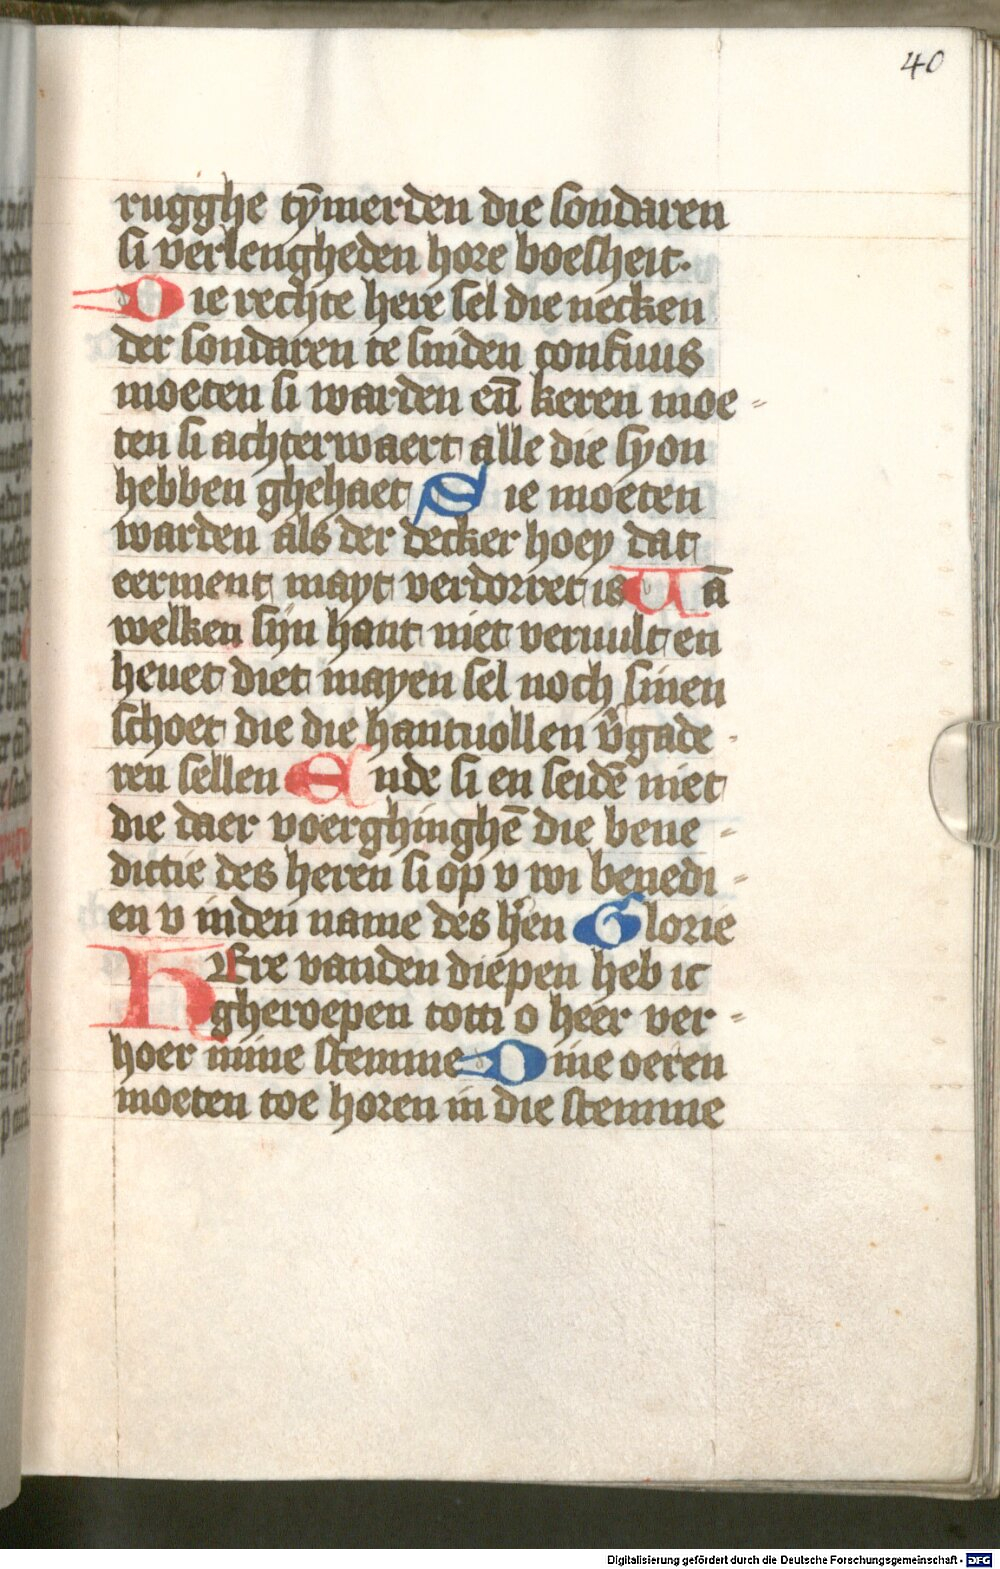 40
rugghe tym̄erden die sondaren
si verlengheden hore boesheit.
Die rechte here sel die necken
der sondaren te sniden confuus
moeten si warden en̄ keren moe-
ten si achterwaert alle die syon
hebben ghehaet Sie moeten
warden als der decker hoey dat
eerment mayt verdorret is Uā
welken syn hant niet veruult en
heuet diet mayen sel noch sinen
schoet die die hantuollen v̄gade-
ren sellen Ende si en seidē niet
die daer voerghinghē die bene-
dictie des heren si op v wi benedi-
en v inden name des h̄en Glorie
HEre vanden diepen heb ic
gheroepen totti o heer ver-
hoer mine stemme Dine oeren
moeten toe horen in die stemme
Digitalisierung gefördert durch die Deutsche Forschungsgemeinschaft - DFG